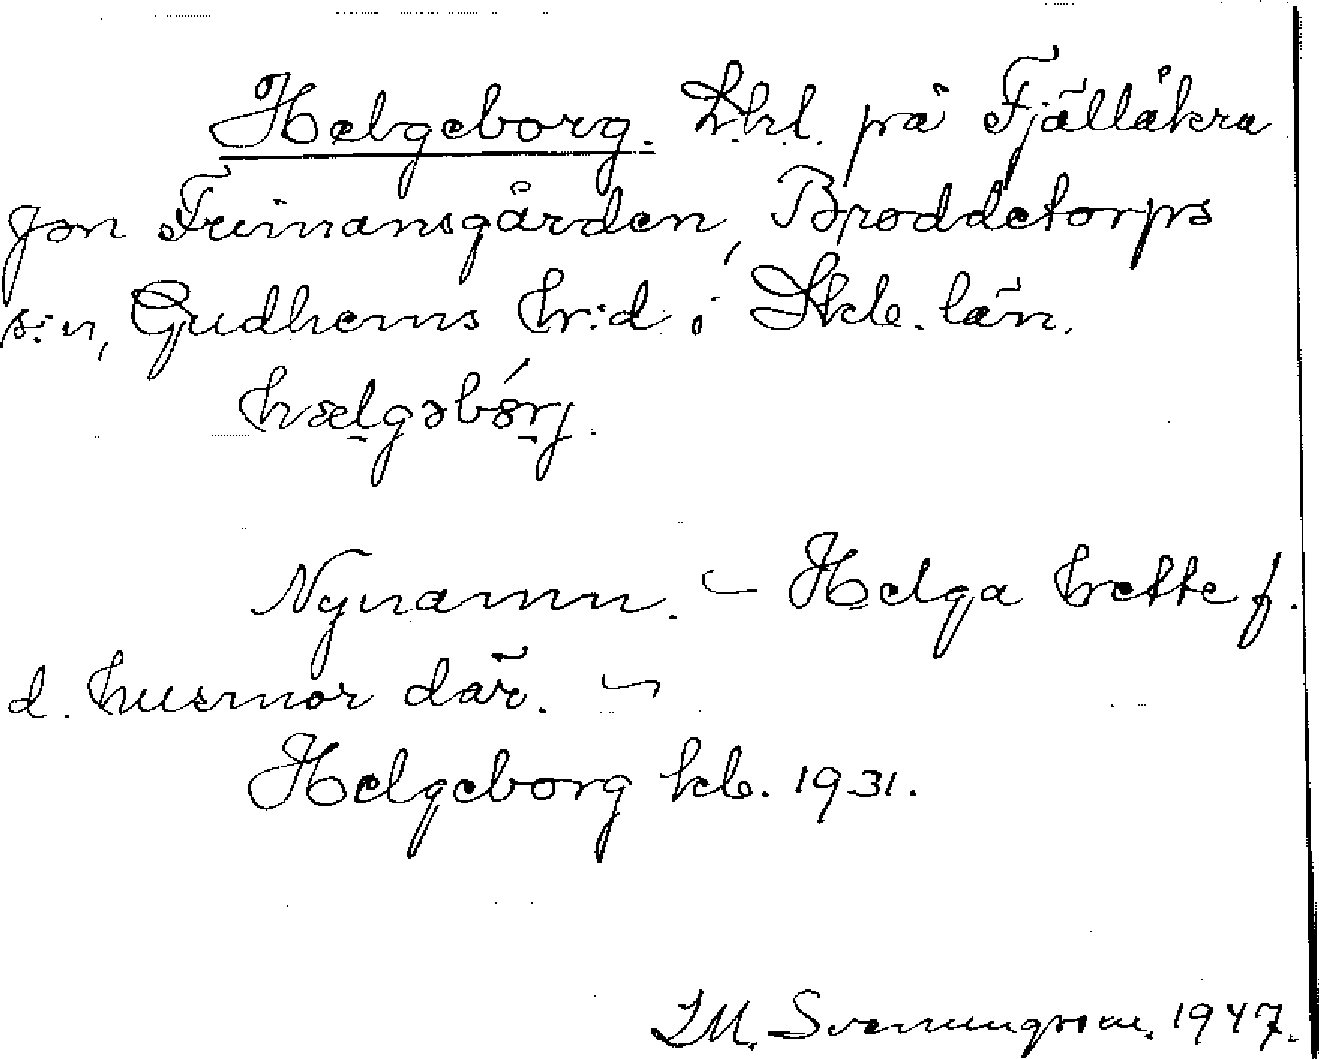 Helgeborg. L.h.l. på Fjällåkra
jon Freimansgården, Broddetorps
s:n, Gudhems hr:d i Skb. län.
hælgəbórj.
Nynamn. – Helga hette f.
d. husmor där. –
Helgeborg kb. 1931.
I.M. Svennungsson. 1947.